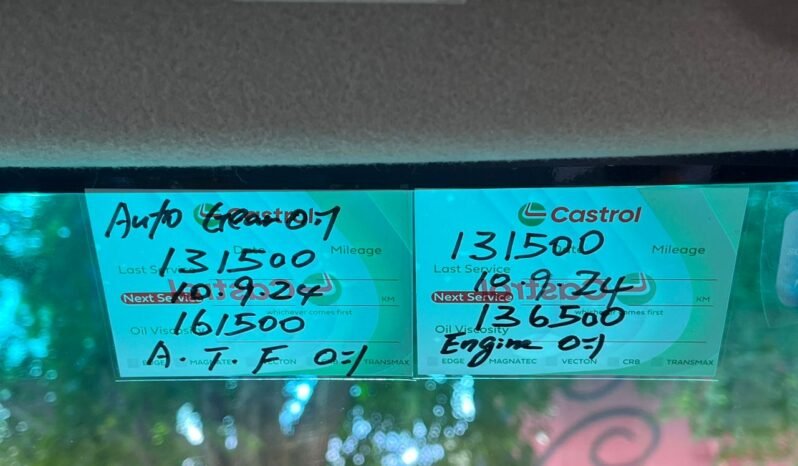 Castrol
Auto Gear Oil
Date Mileage
131500
Last Service
10.9.24
Next Service KM
whichever comes first
161500
Oil Viscosity
A.T.F Oil
EDGE MAGNATEC VECTON CRB TRANSMAX
Castrol
131500
Date Mileage
Last Service
10.9.24
Next Service KM
whichever comes first
136500
Oil Viscosity
Engine Oil
EDGE MAGNATEC VECTON CRB TRANSMAX